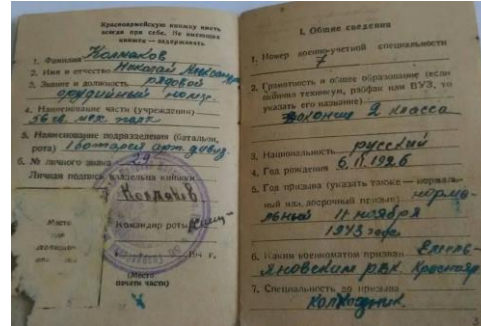 Красноармейскую книжку иметь
всегда при себе. Не имеющих
книжек — задерживать.
1. Фамилия Колмаков
2. Имя и отчество Николай
3. Звание и должность рядовой
орудийный номер
4. Наименование части (учреждения)
мех. полк
5. Наименование подразделения (батальон,
рота) 1 батарея арт. дивиз.
6. № личного знака 29
Личная подпись владельца книжки
Колмаков
Командир роты
Место
(Место
печати части)
I. Общие сведения
1. Номер военно-учетной специальности
7
2. Грамотность и общее образование (если
окончил техникум, рабфак или ВУЗ, то
указать его название)
окончил 2 класса
3. Национальность русский
4. Год рождения 1926
5. Год призыва (указать также — нормаль-
ный или досрочный призыв) норма-
льный 11 ноября
1943 года
6. Каким военкоматом призван Емель-
яновским РВК. Краснояр
7. Специальность до призыва
колхозник